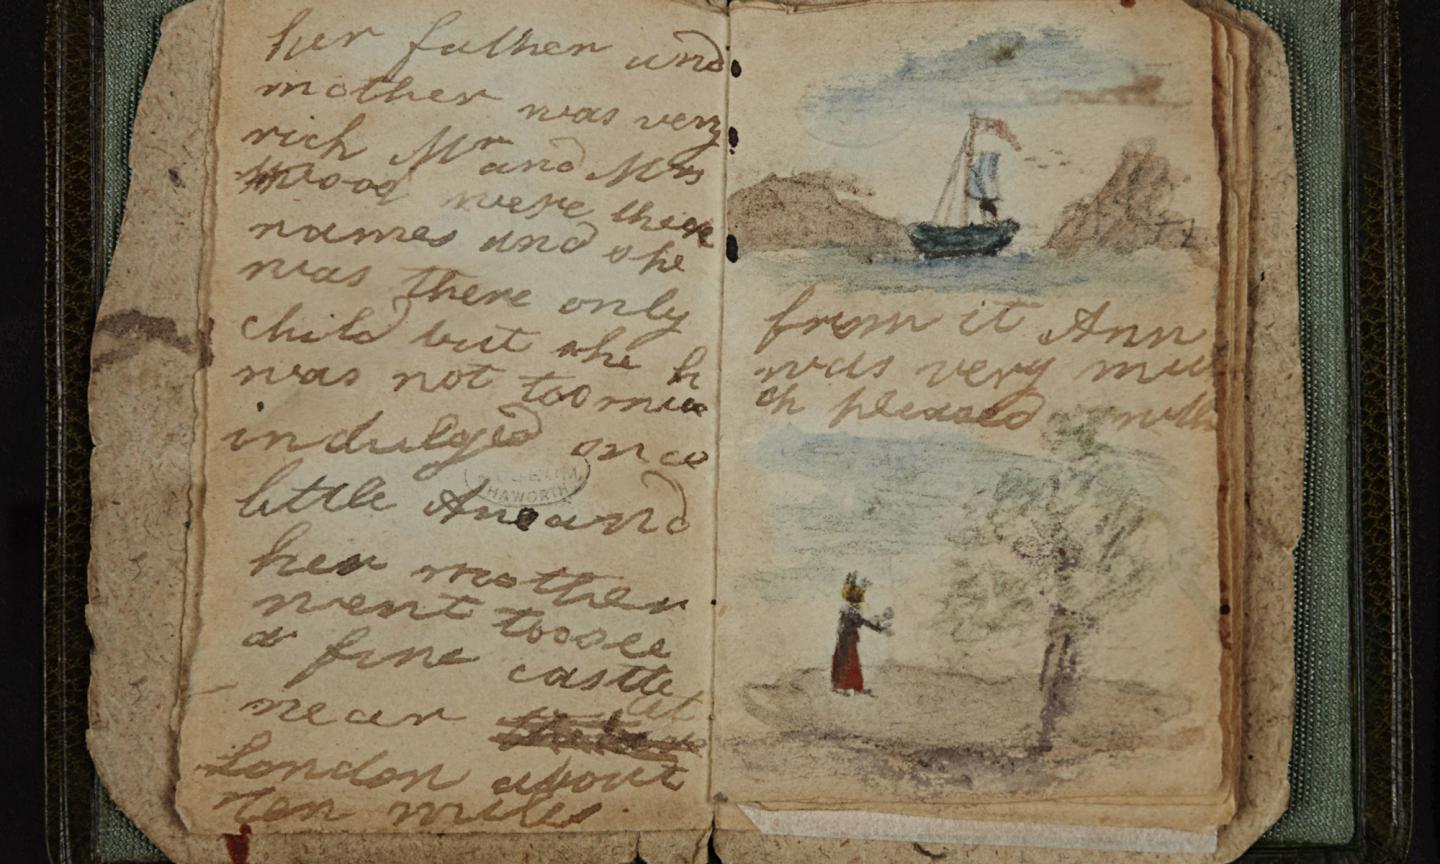 her father and
mother was very
rich Mr and Mrs
Wood were thier
names and she
was there only
child but she h
was not too muc
indulged once
little Ane and
her mother
went too see
a fine castle
near
London about
ten miles.
from it Ann
was very mu
ch pleased with
MUSEUM
HAWORTH